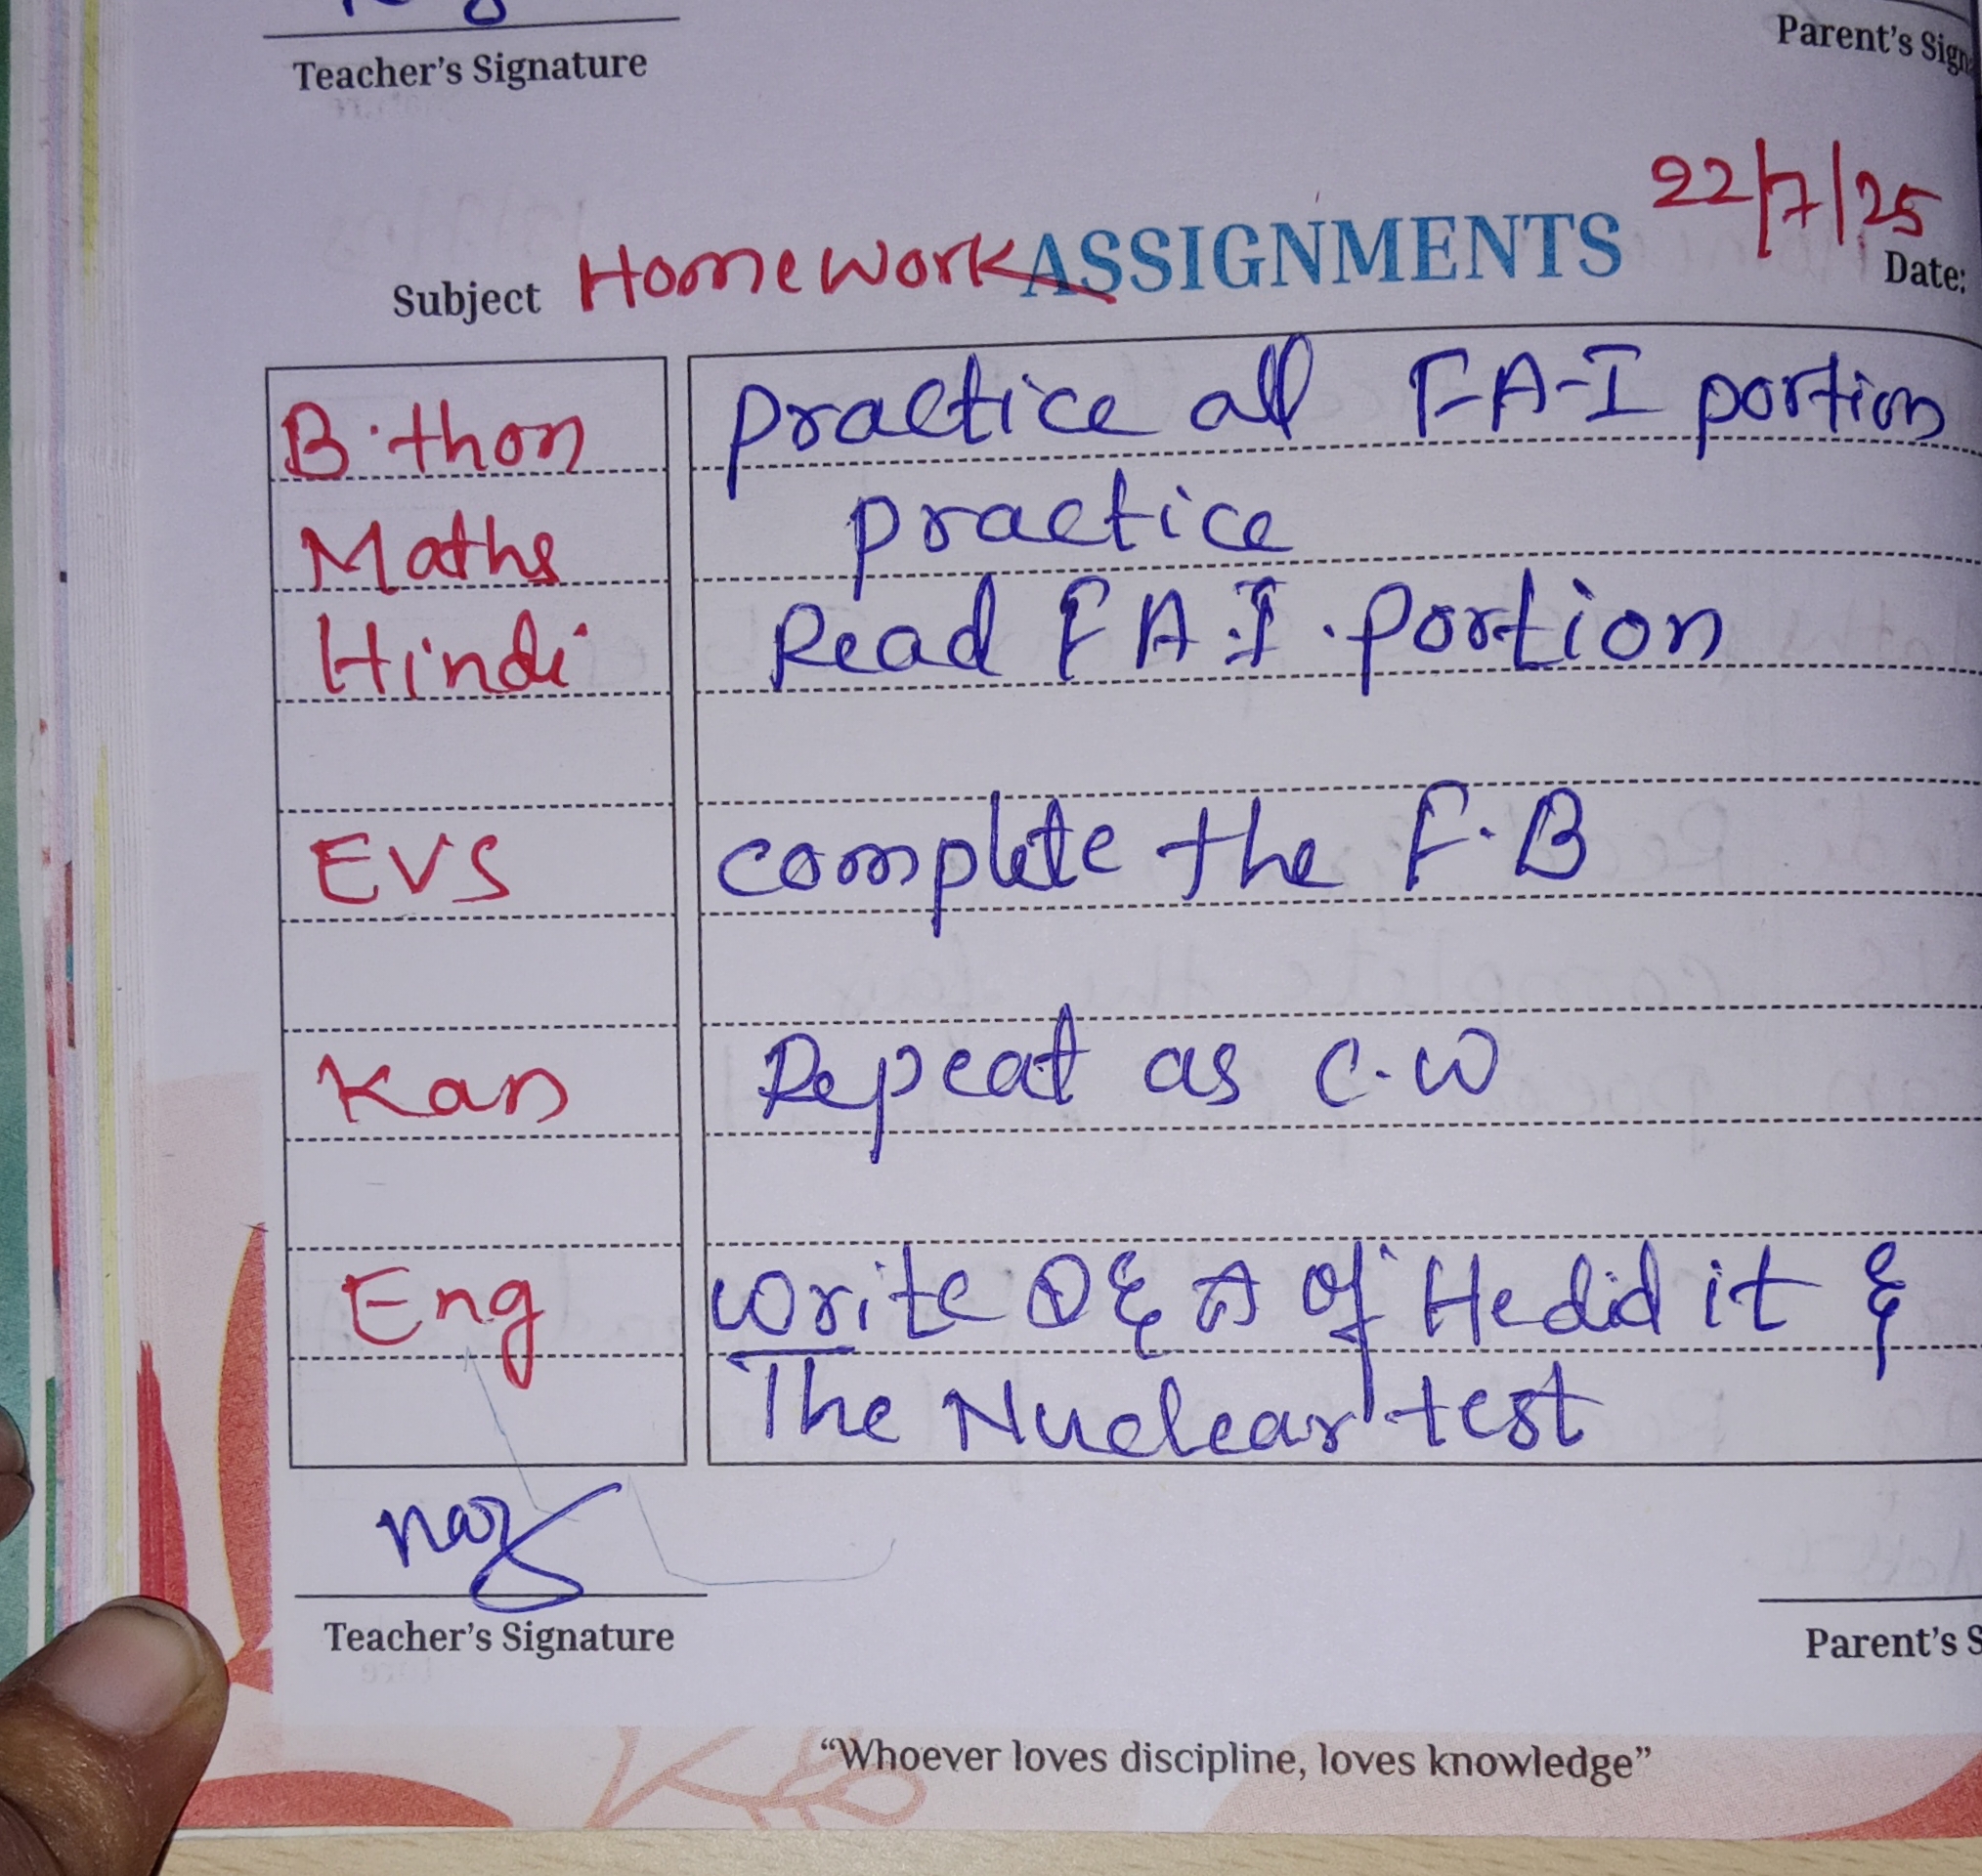 Teacher's Signature
Parent's Sign
22/7/25
Subject Homework ASSIGNMENTS Date:
B.thon practice all FA-I portion
Maths practice
Hindi Read FA.I.portion
EVS complete the F.B
Kan Repeat as C.W
Eng write Q & A of He did it &
The Nuclear test
Teacher's Signature
Parent's S
"Whoever loves discipline, loves knowledge"